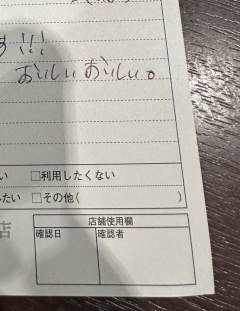 す!!!
おいしいおいしい。
い □利用したくない
たい □その他( )
店
店舗使用欄
確認日 確認者